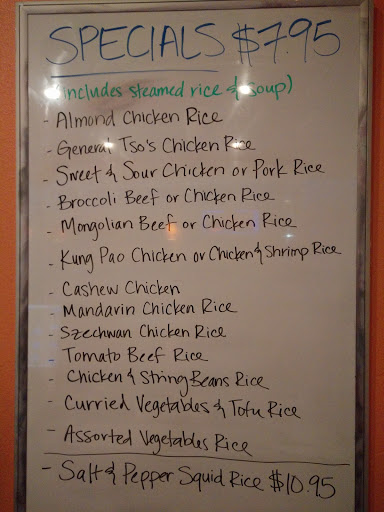 SPECIALS $7.95
(includes steamed rice & soup)
- Almond Chicken Rice
- General Tso's Chicken Rice
- Sweet & Sour Chicken or Pork Rice
- Broccoli Beef or Chicken Rice
- Mongolian Beef or Chicken Rice
- Kung Pao Chicken or Chicken & Shrimp Rice
- Cashew Chicken
- Mandarin Chicken Rice
- Szechwan Chicken Rice
- Tomato Beef Rice
- Chicken & String Beans Rice
- Curried Vegetables & Tofu Rice
- Assorted Vegetables Rice
- Salt & Pepper Squid Rice $10.95